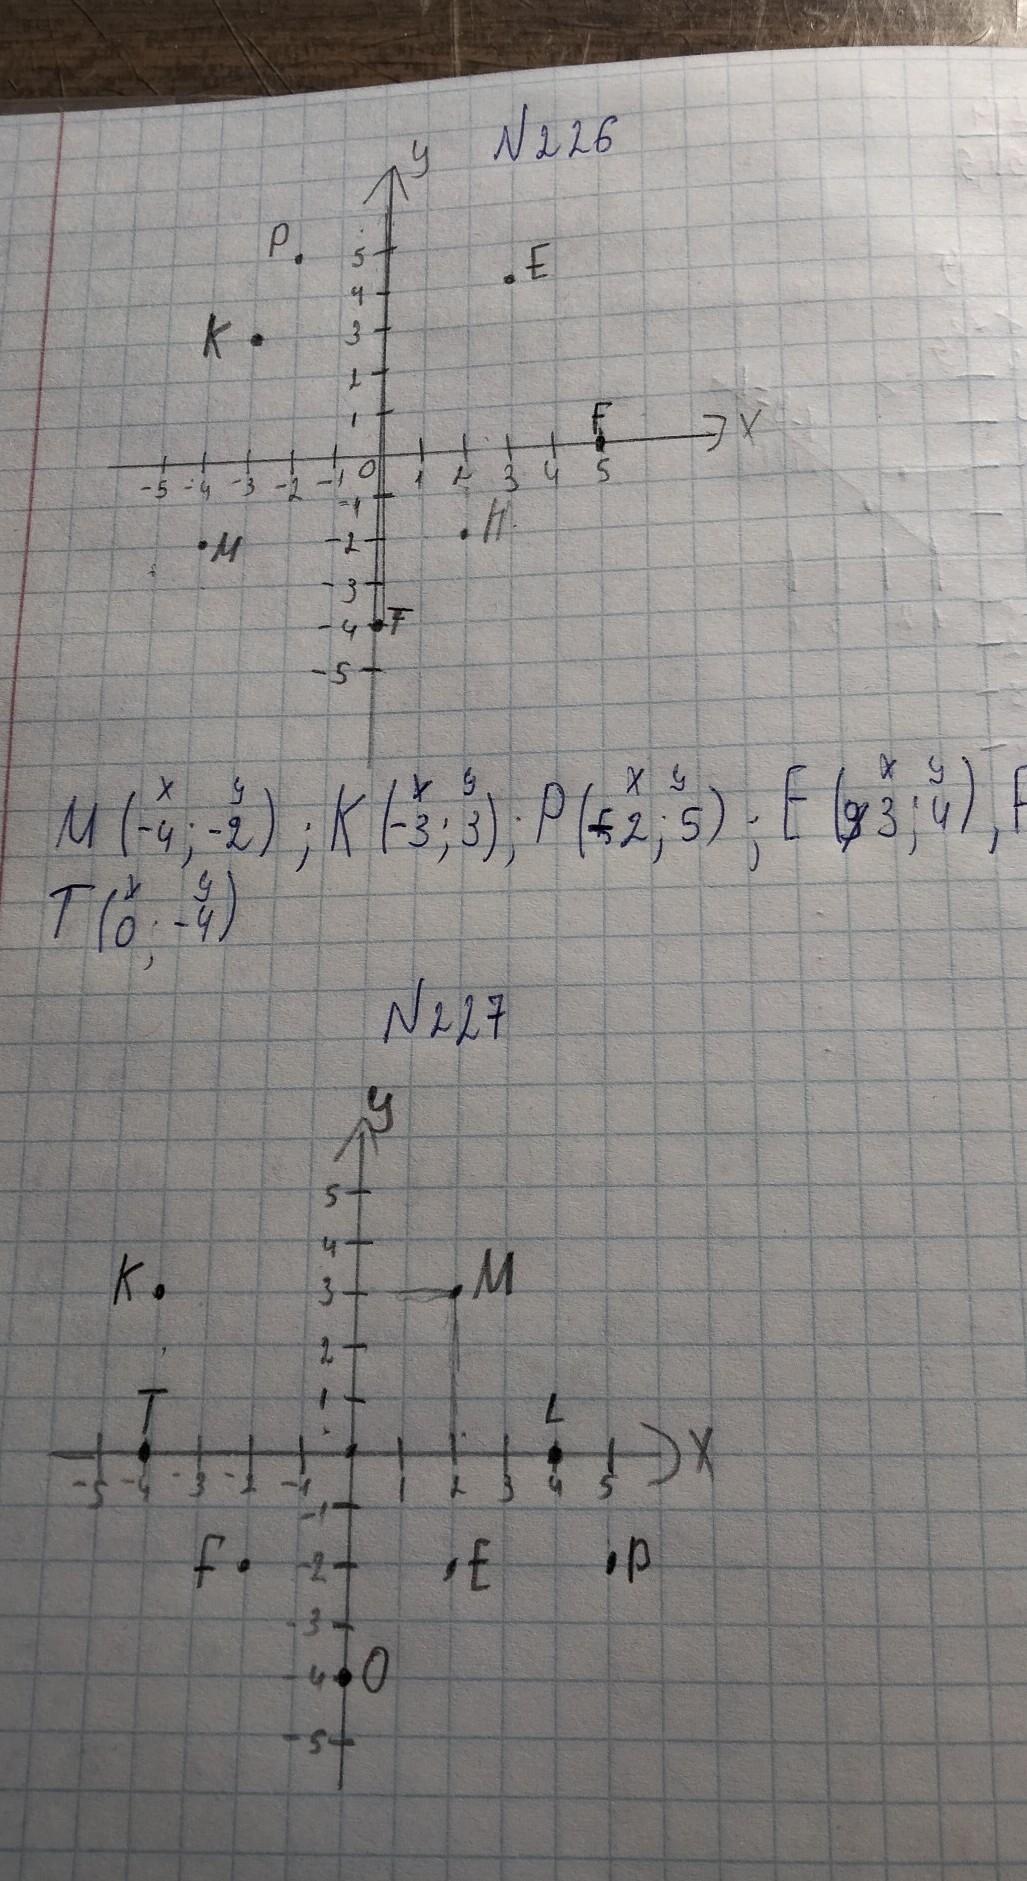 N226
y
P
5
E
4
K
3
2
1
F
X
-5 -4 -3 -2 -1 0 1 2 3 4 5
-1
M
-2
H
-3
-4 T
-5
x y x y x y x y
M(-4; -2); K(-3; 3); P(-2; 5); E(3; 4), F
x y
T(0; -4)
N227
y
5
4
K
3
M
2
1
T
L
X
-5 -4 -3 -2 -1 1 2 3 4 5
-1
F
-2
E
P
-3
-4 O
-5